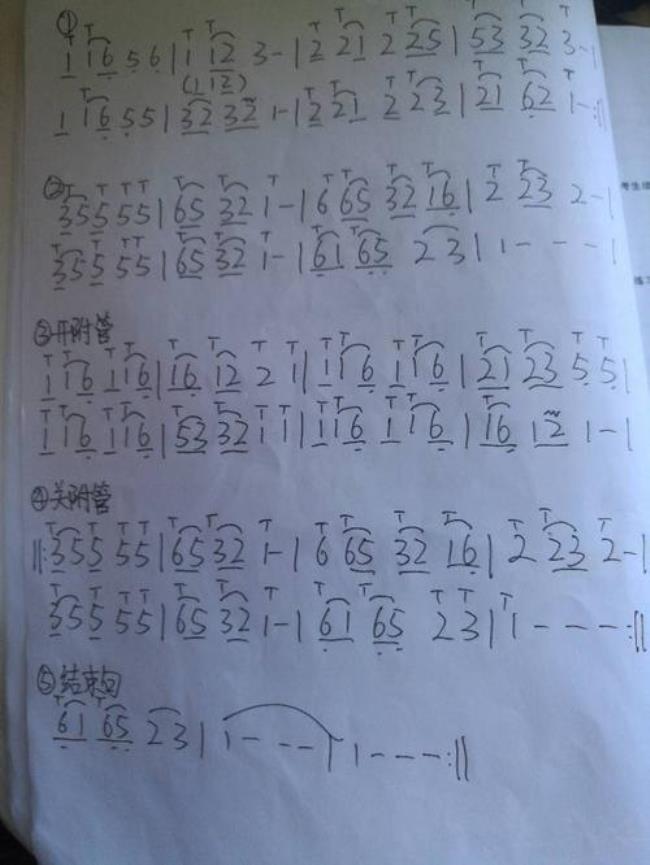 ①
T T T T T T T T T T T
1 16 56|1 12 3-|2 21 2 25|53 32 3-|
(1 12)
1 16 55|32 32 1-|2 21 2 23|21 62 1-:||
②
355 55|65 32 1-|6 65 32 16|2 23 2-|
355 55|65 32 1-|61 65 23|1---|
③开附管
1 16 1 16|16 12 2 1|1 16 1 16|21 23 5 5|
1 16 1 16|53 32 1 1|1 16 1 16|16 12 1-|
④关附管
||:355 55|65 32 1-|6 65 32 16|2 23 2-|
355 55|65 32 1-|61 65 23|1---:||
⑤结束句
61 65 23|1---|1---:||